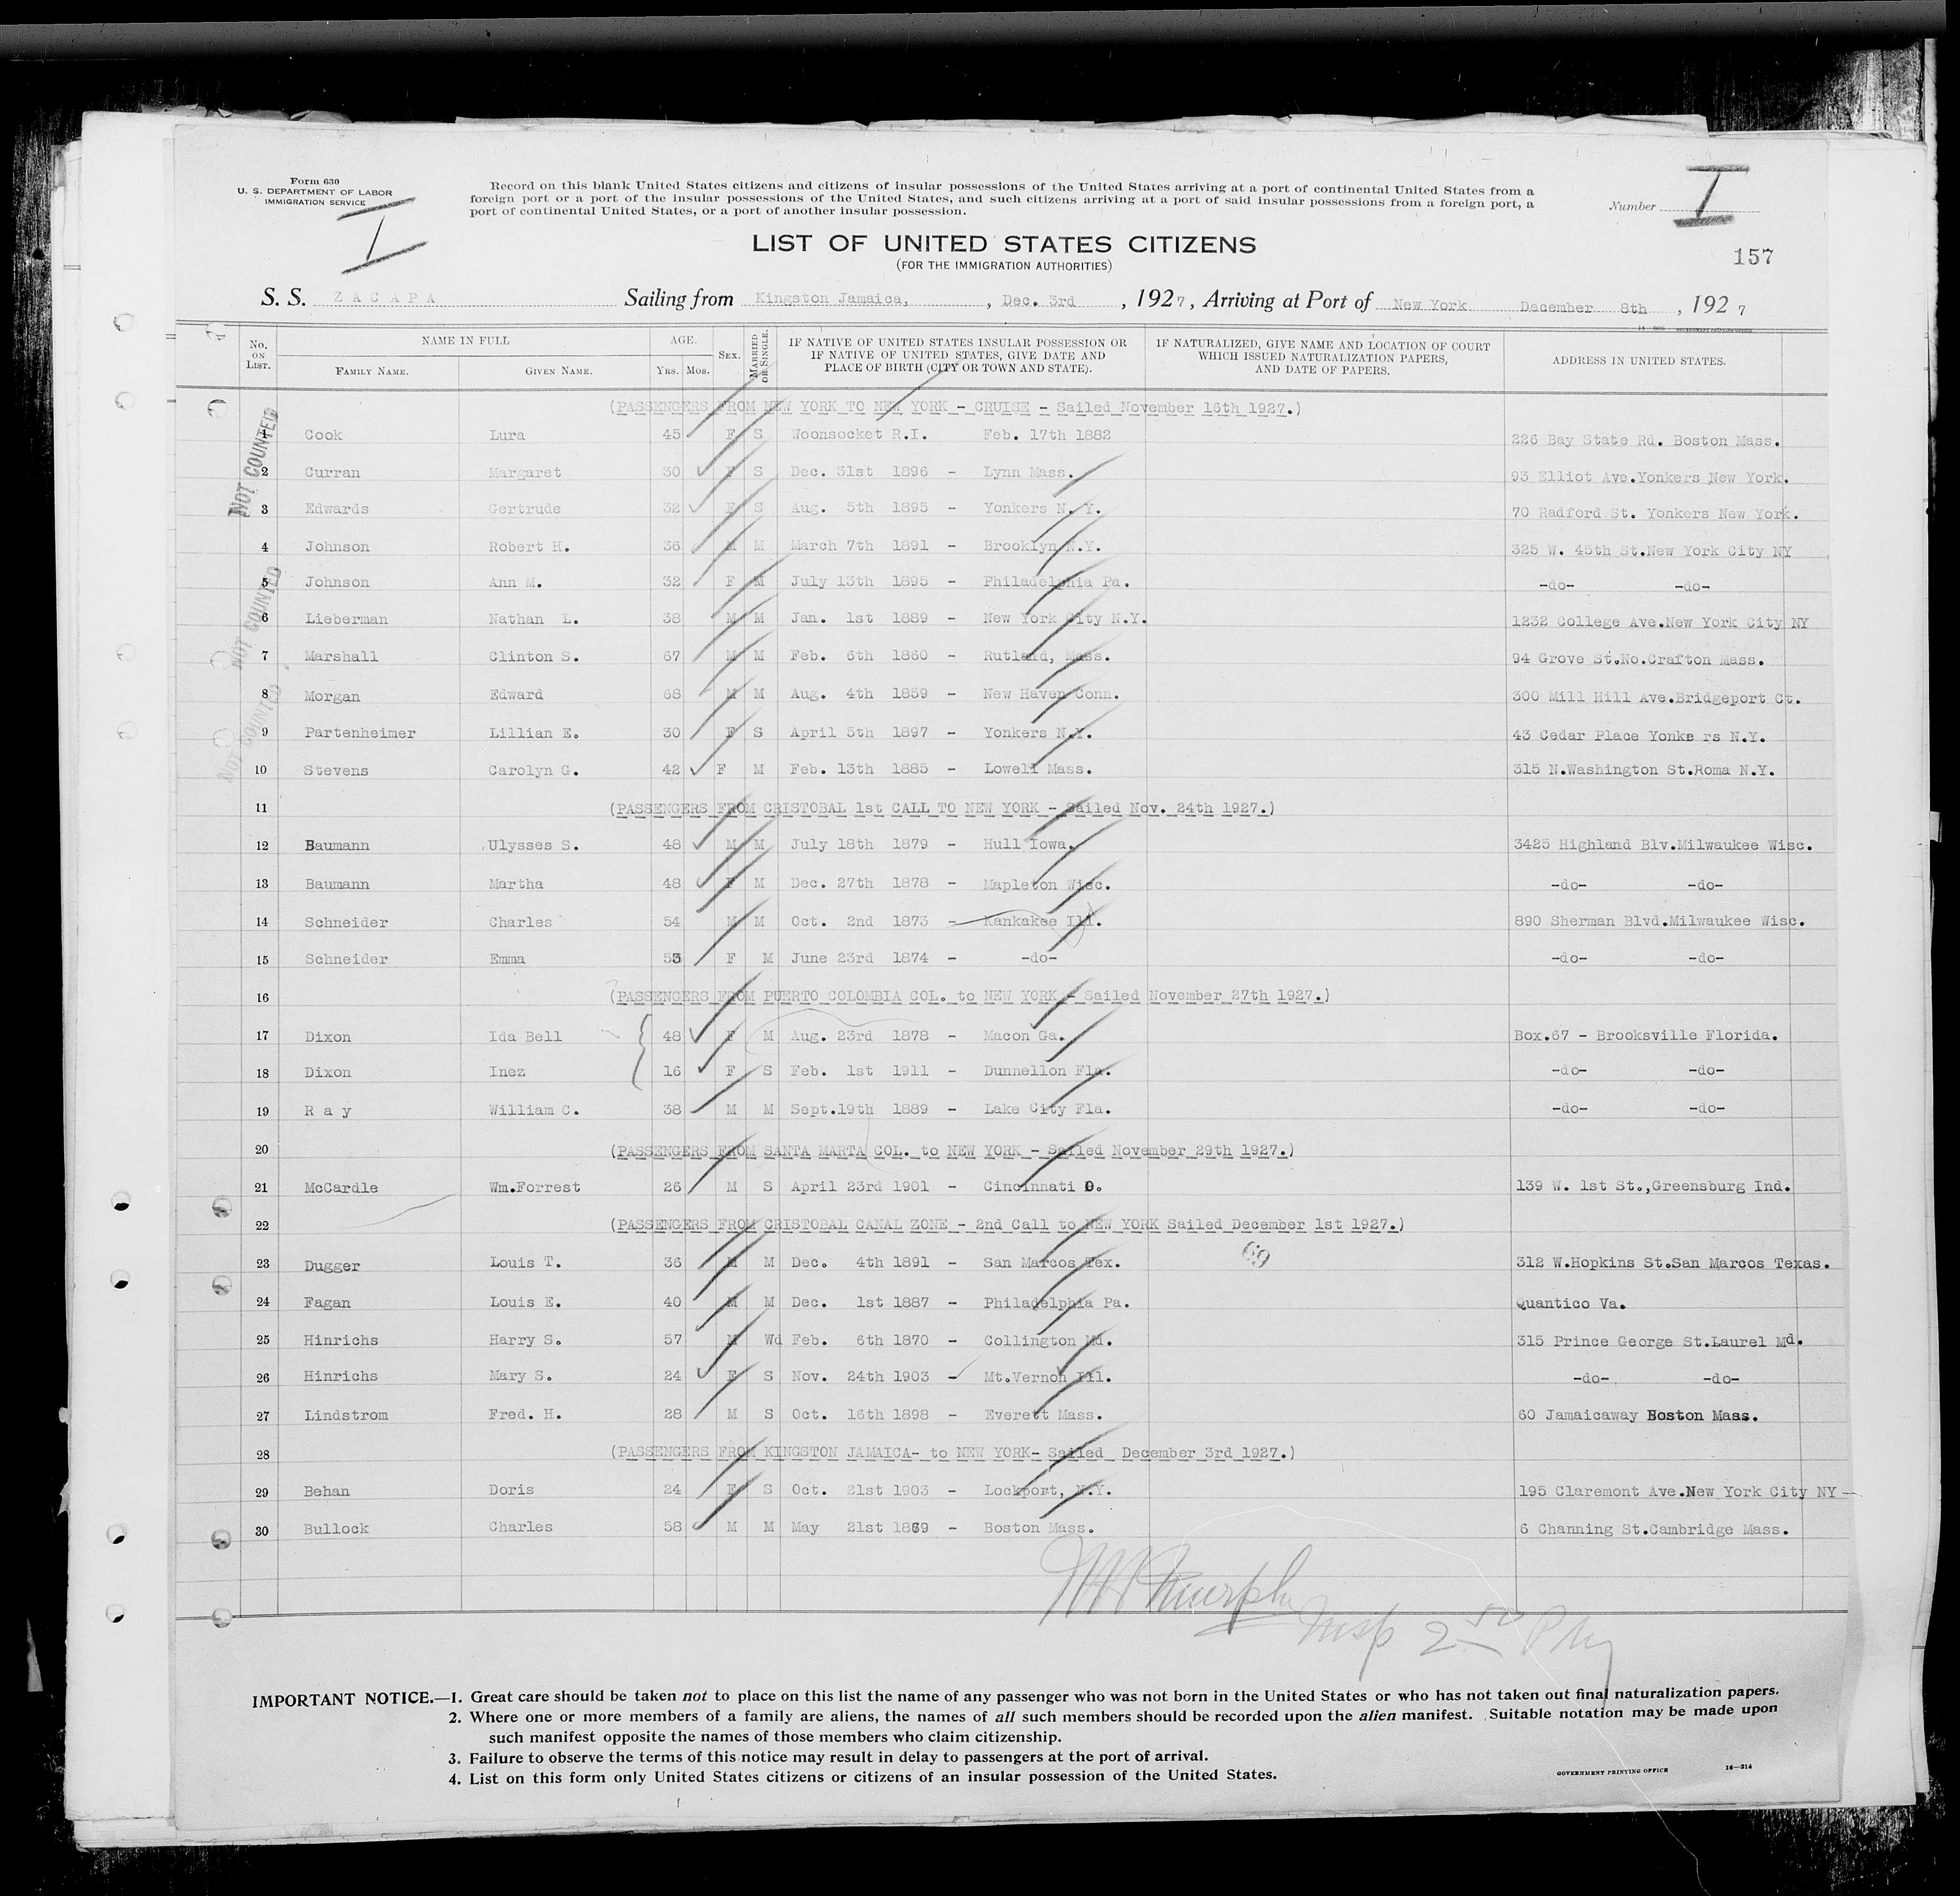 Form 630
U. S. DEPARTMENT OF LABOR
IMMIGRATION SERVICE
I
Record on this blank United States citizens and citizens of insular possessions of the United States arriving at a port of continental United States from a
foreign port or a port of the insular possessions of the United States, and such citizens arriving at a port of said insular possessions from a foreign port, a
port of continental United States, or a port of another insular possession.
Number I
LIST OF UNITED STATES CITIZENS
(FOR THE IMMIGRATION AUTHORITIES)
157
S. S. ZACAPA Sailing from Kingston Jamaica, , Dec. 3rd , 1927, Arriving at Port of New York December 8th , 1927
No. ON LIST. NAME IN FULL FAMILY NAME. GIVEN NAME. AGE. YRS. MOS. SEX. MARRIED OR SINGLE. IF NATIVE OF UNITED STATES INSULAR POSSESSION OR IF NATIVE OF UNITED STATES, GIVE DATE AND PLACE OF BIRTH (CITY OR TOWN AND STATE). IF NATURALIZED, GIVE NAME AND LOCATION OF COURT WHICH ISSUED NATURALIZATION PAPERS, AND DATE OF PAPERS. ADDRESS IN UNITED STATES.
NOT COUNTED
NOT COUNTED
NOT COUNTED
(PASSENGERS FROM NEW YORK TO NEW YORK - CRUISE - Sailed November 16th 1927.)
1 Cook Lura 45 F S Woonsocket R.I. Feb. 17th 1882 226 Bay State Rd. Boston Mass.
2 Curran Margaret 30 F S Dec. 31st 1896 - Lynn Mass. 93 Elliot Ave.Yonkers New York.
3 Edwards Gertrude 32 F S Aug. 5th 1895 - Yonkers N.Y. 70 Radford St. Yonkers New York.
4 Johnson Robert H. 36 M M March 7th 1891 - Brooklyn N.Y. 325 W. 45th St.New York City NY
5 Johnson Ann M. 32 F M July 13th 1895 - Philadelphia Pa. -do- -do-
6 Lieberman Nathan L. 38 M M Jan. 1st 1889 - New York City N.Y. 1232 College Ave.New York City NY
7 Marshall Clinton S. 67 M M Feb. 6th 1860 - Rutland, Mass. 94 Grove St.No.Crafton Mass.
8 Morgan Edward 68 M M Aug. 4th 1859 - New Haven Conn. 300 Mill Hill Ave.Bridgeport Ct.
9 Partenheimer Lillian E. 30 F S April 5th 1897 - Yonkers N.Y. 43 Cedar Place Yonke rs N.Y.
10 Stevens Carolyn G. 42 F M Feb. 13th 1885 - Lowell Mass. 315 N.Washington St.Roma N.Y.
11 (PASSENGERS FROM CRISTOBAL 1st CALL TO NEW YORK - Sailed Nov. 24th 1927.)
12 Baumann Ulysses S. 48 M M July 18th 1879 - Hull Iowa. 3425 Highland Blv.Milwaukee Wisc.
13 Baumann Martha 48 F M Dec. 27th 1878 - Mapleton Wisc. -do- -do-
14 Schneider Charles 54 M M Oct. 2nd 1873 - Kankakee Ill. 890 Sherman Blvd.Milwaukee Wisc.
15 Schneider Emma 53 F M June 23rd 1874 - -do- -do- -do-
16 (PASSENGERS FROM PUERTO COLOMBIA COL. to NEW YORK - Sailed November 27th 1927.)
17 Dixon Ida Bell 48 F M Aug. 23rd 1878 - Macon Ga. Box.67 - Brooksville Florida.
18 Dixon Inez 16 F S Feb. 1st 1911 - Dunnellon Fla. -do- -do-
19 R a y William C. 38 M M Sept.19th 1889 - Lake City Fla. -do- -do-
20 (PASSENGERS FROM SANTA MARTA COL. to NEW YORK - Sailed November 29th 1927.)
21 McCardle Wm.Forrest 26 M S April 23rd 1901 - Cincinnati O. 139 W. 1st St.,Greensburg Ind.
22 (PASSENGERS FROM CRISTOBAL CANAL ZONE - 2nd Call to NEW YORK Sailed December 1st 1927.)
23 Dugger Louis T. 36 M M Dec. 4th 1891 - San Marcos Tex. 69 312 W.Hopkins St.San Marcos Texas.
24 Fagan Louis E. 40 M M Dec. 1st 1887 - Philadelphia Pa. Quantico Va.
25 Hinrichs Harry S. 57 M Wd Feb. 6th 1870 - Collington Md. 315 Prince George St.Laurel Md.
26 Hinrichs Mary S. 24 F S Nov. 24th 1903 - Mt.Vernon Ill. -do- -do-
27 Lindstrom Fred. H. 28 M S Oct. 16th 1898 - Everett Mass. 60 Jamaicaway Boston Mass.
28 (PASSENGERS FROM KINGSTON JAMAICA- to NEW YORK- Sailed December 3rd 1927.)
29 Behan Doris 24 F S Oct. 21st 1903 - Lockport, N.Y. 195 Claremont Ave.New York City NY
30 Bullock Charles 58 M M May 21st 1869 - Boston Mass. 6 Channing St.Cambridge Mass.
Murphy
Insp
IMPORTANT NOTICE.—1. Great care should be taken not to place on this list the name of any passenger who was not born in the United States or who has not taken out final naturalization papers.
2. Where one or more members of a family are aliens, the names of all such members should be recorded upon the alien manifest. Suitable notation may be made upon
such manifest opposite the names of those members who claim citizenship.
3. Failure to observe the terms of this notice may result in delay to passengers at the port of arrival.
4. List on this form only United States citizens or citizens of an insular possession of the United States.
GOVERNMENT PRINTING OFFICE 14—214